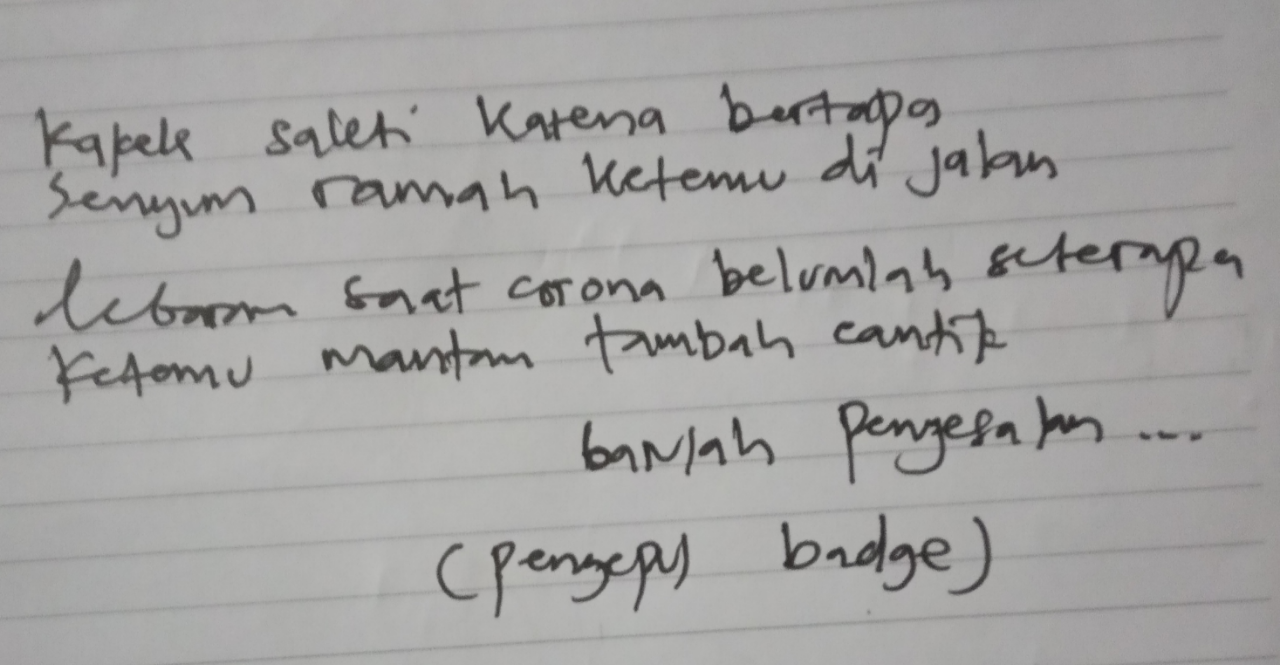 Kakek sakti karena bertapa
Senyum ramah ketemu di jalan
lebaran saat corona belumlah seberapa
Ketemu mantan tambah cantik
barulah penyesalan ...
(pengepul badge)